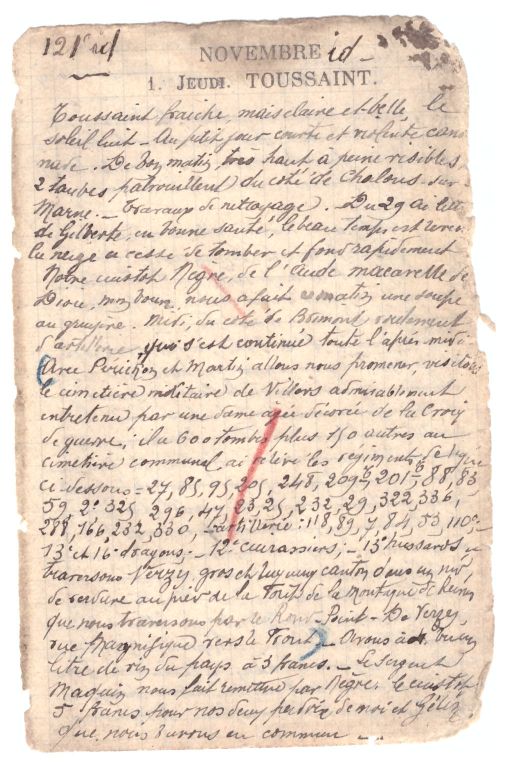 121e id
NOVEMBRE id
1. JEUDI. TOUSSAINT.
Toussaint fraiche, mais claire et belle, le
soleil luit - Au petit jour courte et violente cano
nade. De bon matin, très haut à peine visibles,
2 taubes patrouillent du coté de Chalons sur
Marne. - Travaux de nettoyage. Du 29 de lett
de Gilberte, en bonne santé, le beau temps est
la neige a cessé de tomber et fond rapidement
Notre cuistot Nègre, de l'Aude macarelle de
Diou, nous a fait ce matin une soupe
au gruyère. Midi, du coté de Brimont, roulement
d'artillerie qui s'est continué toute l'après midi
Avec Peuchon et Martin allons nous promener, visitons
le cimetière militaire de Villers admirablement
entretenu par une dame agée décorée de la Croix
de guerre; il a 600 tombes plus 150 autres au
cimetière communal ai relevé les régiments de ligne
ci-dessous = 27, 85, 95, 205, 248, 209, 201, 88, 83
59, 2e 325, 296, 47, 23, 25, 232, 29, 322, 336,
288, 166, 232, 330, L'artillerie: 118, 89, 7, 84, 53, 110e
13e et 16e dragons; - 12e cuirassiers; - 15e hussards
traversons Verzy, gros et canton dans un nid,
de verdure au pied de la Forêt de la Montagne de Reims
que nous traversons par le Rond-Point - De Verzy,
vue magnifique vers le Front - Avons
litre de vin du pays à 3 francs. - Le Sergent
Maquin nous fait remettre par Nègre, le cuistot
5 francs pour nos deux perdrix de moi et Gélin
que nous aurons en commun